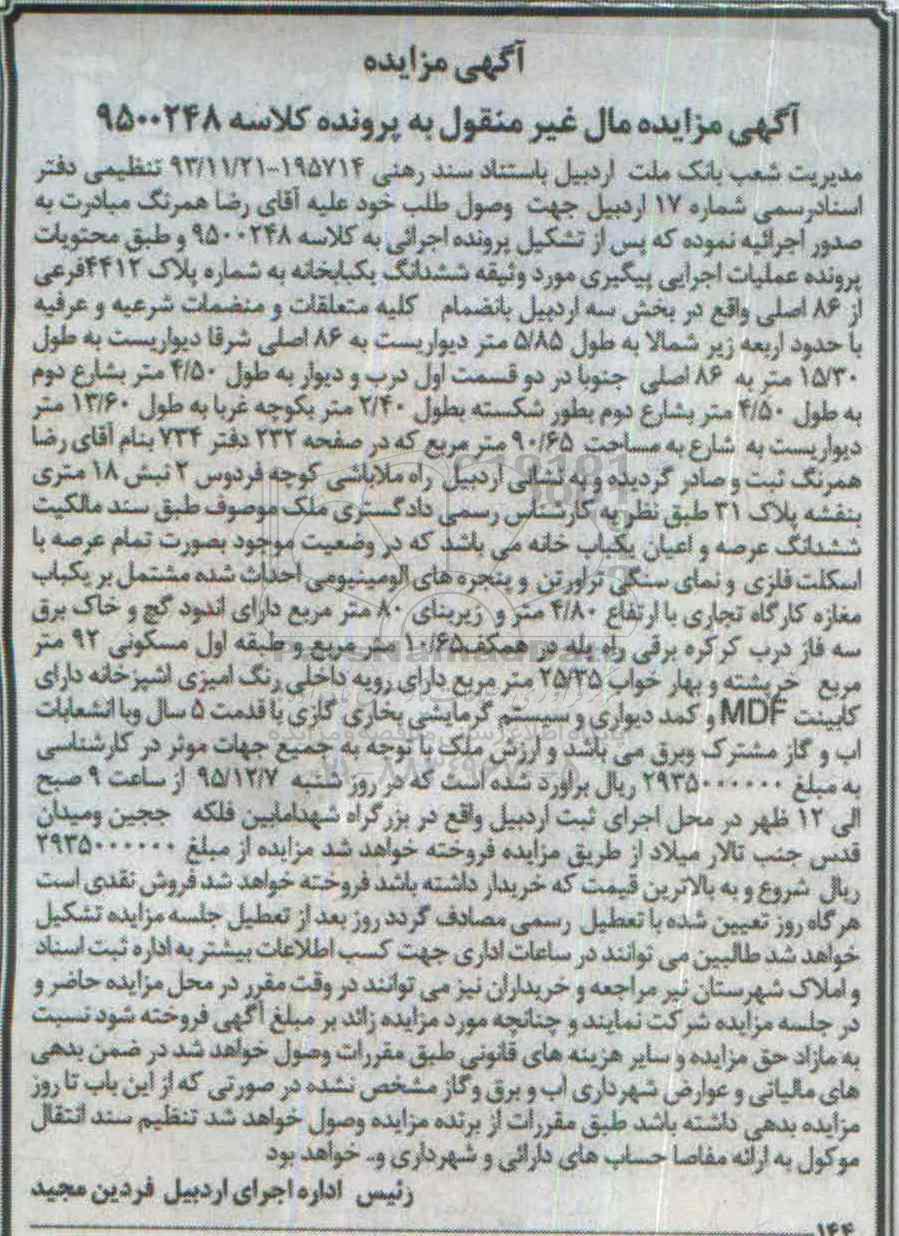 آگهی مزایده
آگهی مزایده مال غیر منقول به پرونده کلاسه ۹۵۰۰۲۴۸
مدیریت شعب بانک ملت اردبیل باستناد سند رهنی ۱۹۵۷۱۴-۹۳/۱۱/۲۱ تنظیمی دفتر
اسنادرسمی شماره ۱۷ اردبیل جهت وصول طلب خود علیه آقای رضا همرنگ مبادرت به
صدور اجرائیه نموده که پس از تشکیل پرونده اجرائی به کلاسه ۹۵۰۰۲۴۸ و طبق محتویات
پرونده عملیات اجرایی پیگیری مورد وثیقه ششدانگ یکبابخانه به شماره پلاک ۴۴۱۲فرعی
از ۸۶ اصلی واقع در بخش سه اردبیل بانضمام کلیه متعلقات و منضمات شرعیه و عرفیه
با حدود اربعه زیر شمالا به طول ۵/۸۵ متر دیواریست به ۸۶ اصلی شرقا دیواریست به طول
۱۵/۳۰ متر به ۸۶ اصلی جنوبا در دو قسمت اول درب و دیوار به طول ۴/۵۰ متر بشارع دوم
به طول ۴/۵۰ متر بشارع دوم بطور شکسته بطول ۲/۴۰ متر بکوچه غربا به طول ۱۳/۶۰ متر
دیواریست به شارع به مساحت ۹۰/۶۵ متر مربع که در صفحه ۲۳۲ دفتر ۷۳۴ بنام آقای رضا
همرنگ ثبت و صادر گردیده و به نشانی اردبیل راه ملاباشی کوچه فردوس ۲ نبش ۱۸ متری
بنفشه پلاک ۳۱ طبق نظریه کارشناس رسمی دادگستری ملک موصوف طبق سند مالکیت
ششدانگ عرصه و اعیان یکباب خانه می باشد که در وضعیت موجود بصورت تمام عرصه با
اسکلت فلزی و نمای سنگی تراورتن و پنجره های الومینیومی احداث شده مشتمل بر یکباب
مغازه کارگاه تجاری با ارتفاع ۴/۸۰ متر و زیربنای ۸۰ متر مربع دارای اندود گچ و خاک برق
سه فاز درب کرکره برقی راه پله در همکف۱۰/۶۵ متر مربع و طبقه اول مسکونی ۹۲ متر
مربع خرپشته و بهار خواب ۲۵/۳۵ متر مربع دارای رویه داخلی رنگ امیزی اشپزخانه دارای
کابینت MDF و کمد دیواری و سیستم گرمایشی بخاری گازی با قدمت ۵ سال وبا انشعابات
اب و گاز مشترک وبرق می باشد و ارزش ملک با توجه به جمیع جهات موثر در کارشناسی
به مبلغ ۲۹۳۵۰۰۰۰۰۰ ریال براورد شده است که در روز شنبه ۹۵/۱۲/۷ از ساعت ۹ صبح
الی ۱۲ ظهر در محل اجرای ثبت اردبیل واقع در بزرگراه شهدامابین فلکه ججین ومیدان
قدس جنب تالار میلاد از طریق مزایده فروخته خواهد شد مزایده از مبلغ ۲۹۳۵۰۰۰۰۰۰
ریال شروع و به بالاترین قیمت که خریدار داشته باشد فروخته خواهد شد فروش نقدی است
هر گاه روز تعیین شده با تعطیل رسمی مصادف گردد روز بعد از تعطیل جلسه مزایده تشکیل
خواهد شد طالبین می توانند در ساعات اداری جهت کسب اطلاعات بیشتر به اداره ثبت اسناد
و املاک شهرستان نیر مراجعه و خریداران نیز می توانند در وقت مقرر در محل مزایده حاضر و
در جلسه مزایده شرکت نمایند و چنانچه مورد مزایده زائد بر مبلغ آگهی فروخته شود نسبت
به مازاد حق مزایده و سایر هزینه های قانونی طبق مقررات وصول خواهد شد در ضمن بدهی
های مالیاتی و عوارض شهرداری اب و برق وگاز مشخص نشده در صورتی که از این باب تا روز
مزایده بدهی داشته باشد طبق مقررات از برنده مزایده وصول خواهد شد تنظیم سند انتقال
موکول به ارائه مفاصا حساب های دارائی و شهرداری و.. خواهد بود
رئیس اداره اجرای اردبیل فردین مجید
۱۴۴